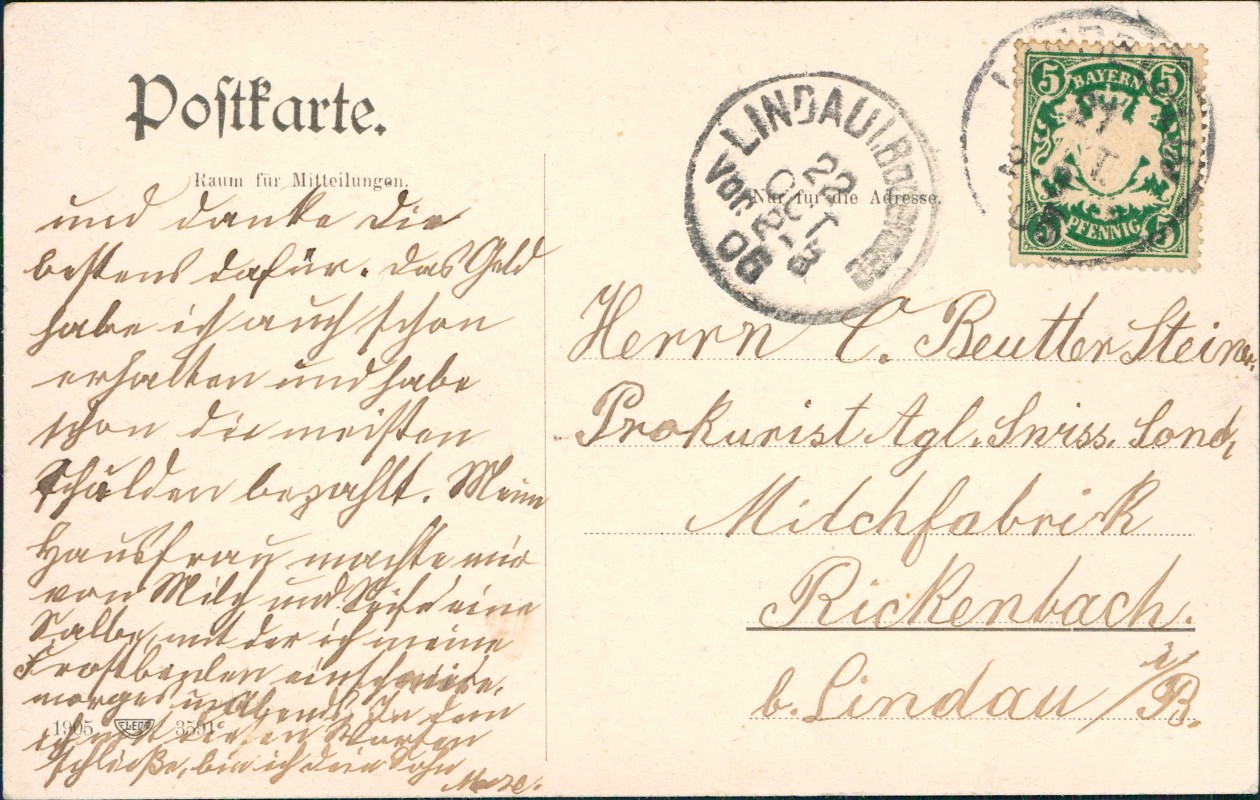 Postkarte.
Raum für Mitteilungen.
und danke Dir
bestens dafür. Das Geld
habe ich auch schon
erhalten und habe
schon die meisten
Schulden bezahlt. Meine
Hausfrau machte mir
von Milch und Seife eine
Salbe, mit der ich meine
Frostbeulen einschmiere,
morges u. Abends. In dem
ich mit diesen Worten
schließe, bin ich dein Sohn
1905 3591
LINDAU
Vor.
22
OCT
06
Nur für die Adresse.
5 BAYERN 5
5 PFENNIG 5
Herrn C. Beutter Steiner.
Prokurist Agl. Swiss. Cond.
Milchfabrik
Rickenbach.
b. Lindau i/B.